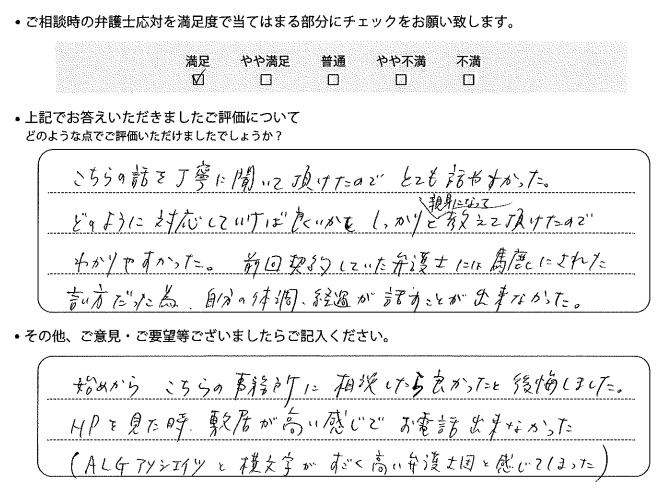 ・ご相談時の弁護士応対を満足度で当てはまる部分にチェックをお願い致します。
満足 やや満足 普通 やや不満 不満
☑ □ □ □ □
・上記でお答えいただきましたご評価について
どのような点でご評価いただけましたでしょうか？
こちらの話を丁寧に聞いて頂けたので とても話やすかった。
親身になって
どのように対応していけば良いかを しっかりと教えて頂けたので
わかりやすかった。 前回契約していた弁護士には馬鹿にされた
言い方だった為、自分の体調、経過が話すことが出来なかった。
・その他、ご意見・ご要望等ございましたらご記入ください。
始めから こちらの事務所に相談したら良かったと後悔しました。
HPを見た時、敷居が高い感じで お電話出来なかった
(ALGアソシエイツと横文字が すごく高い弁護士団と感じてしまった)